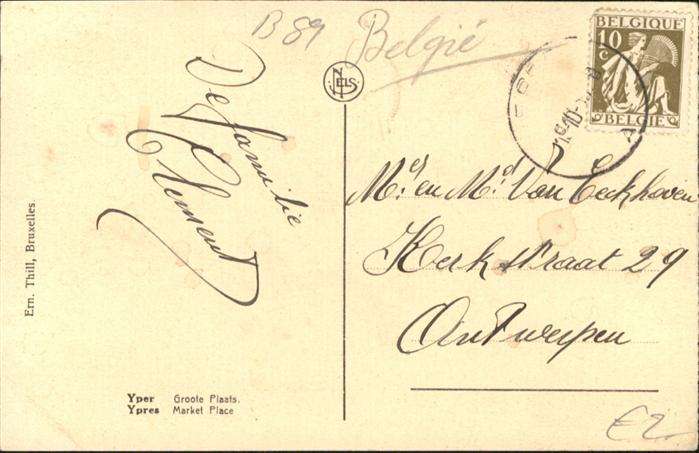 B 89
België
De familie
Clement
NELS
BELGIQUE
10
c
BELGIË
Mr. en Md. Van Eeckhoven
Kerkstraat 29
Antwerpen
Ern. Thill, Bruxelles.
Yper Groote Plaats.
Ypres Market Place
€2